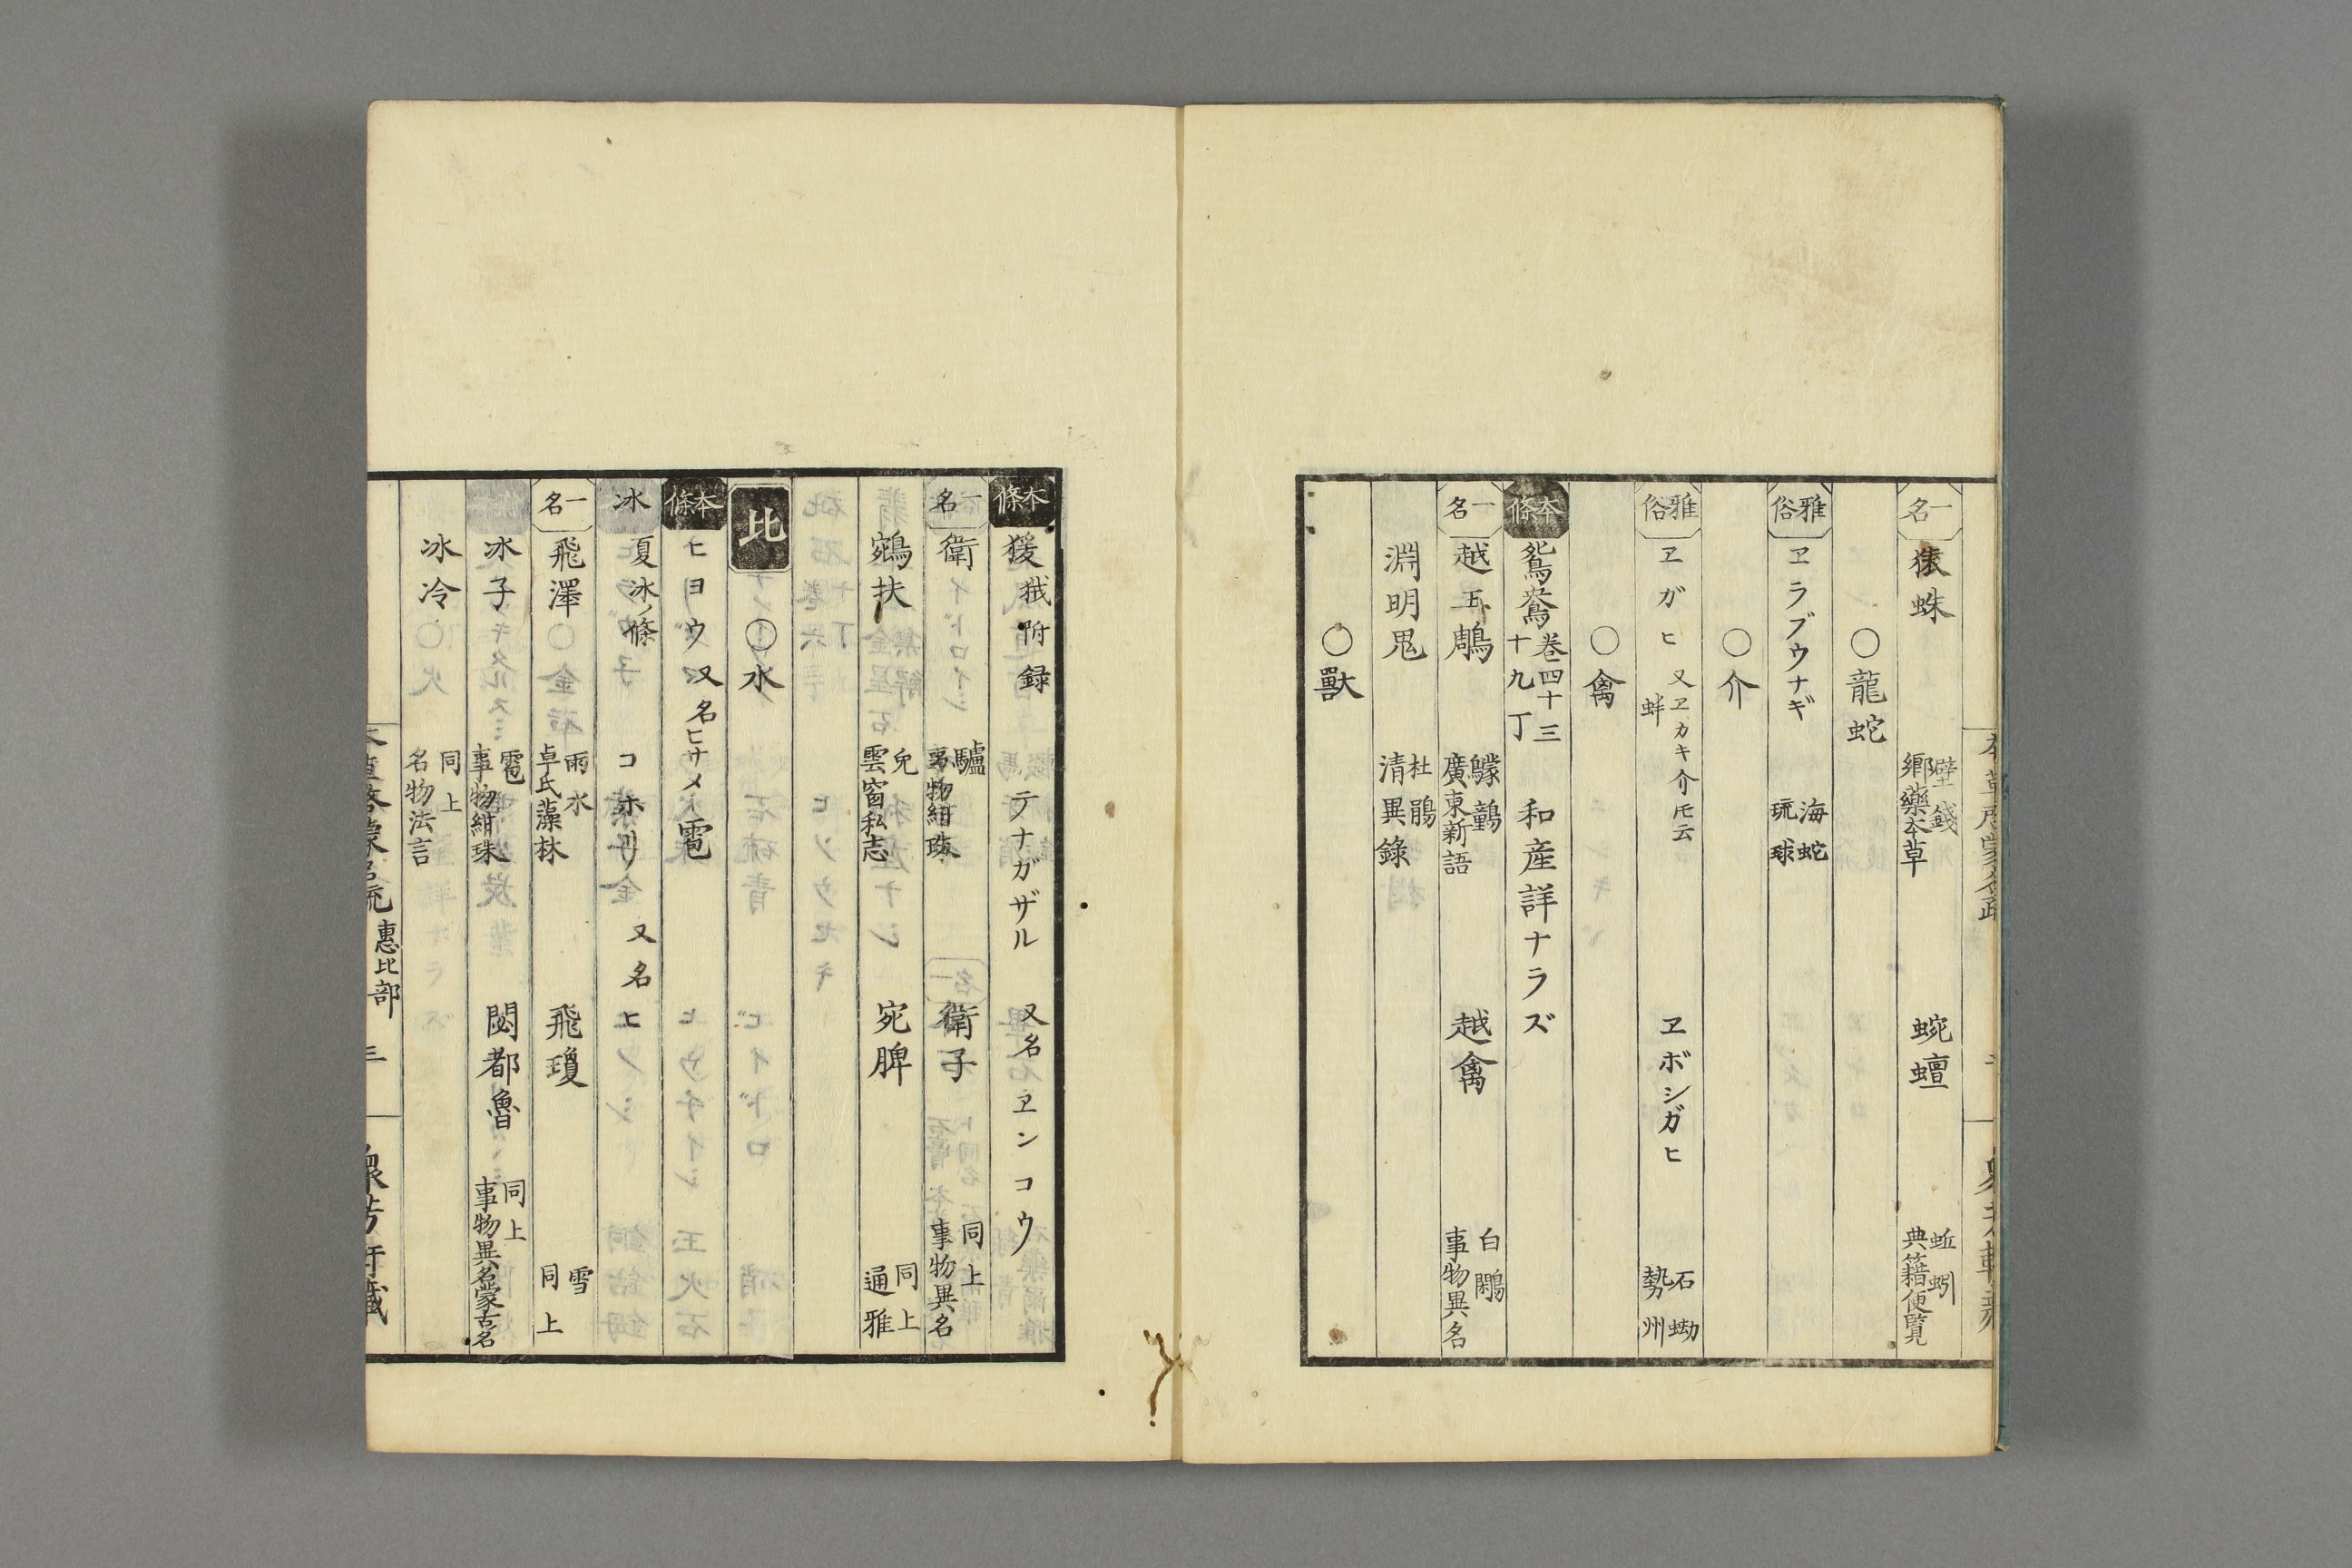 一名 猿蛛 壁錢 鄉藥本草 蜿蟺 蚯蚓 典籍便覽
○龍蛇
雅俗 ヱラブウナギ 海蛇 琉球
○介
雅俗 ヱガヒ 又ヱカキ介氏云 蚌 ヱボシガヒ 石蚴 勢州
○禽
本條 鴛鴦 卷四十三 十九丁 和産詳ナラズ
一名 越王鵰 鸏鶴 廣東新語 越禽 白鷴 事物異名
淵明鬼 杜鵑 清異錄
○獸
本條 猨 㺉附録 テナガザル 又名ヱンコウ
一名 衛 驢 事物紺珠 衛子 同上 事物異名
鵷扶 兔 雲窗私志 宛脾 同上 通雅
比 ○水
本條 ヒヨウ 又名ヒサメ 雹
冰 夏冰ノ條 コホリ 又名ヒ
一名 飛澤 雨水 卓氏藻林 飛瓊 雪 同上
冰子 雹 事物紺珠 閟都魯 同上 事物異名蒙古名
冰冷 同上 名物法言
惠比部 三